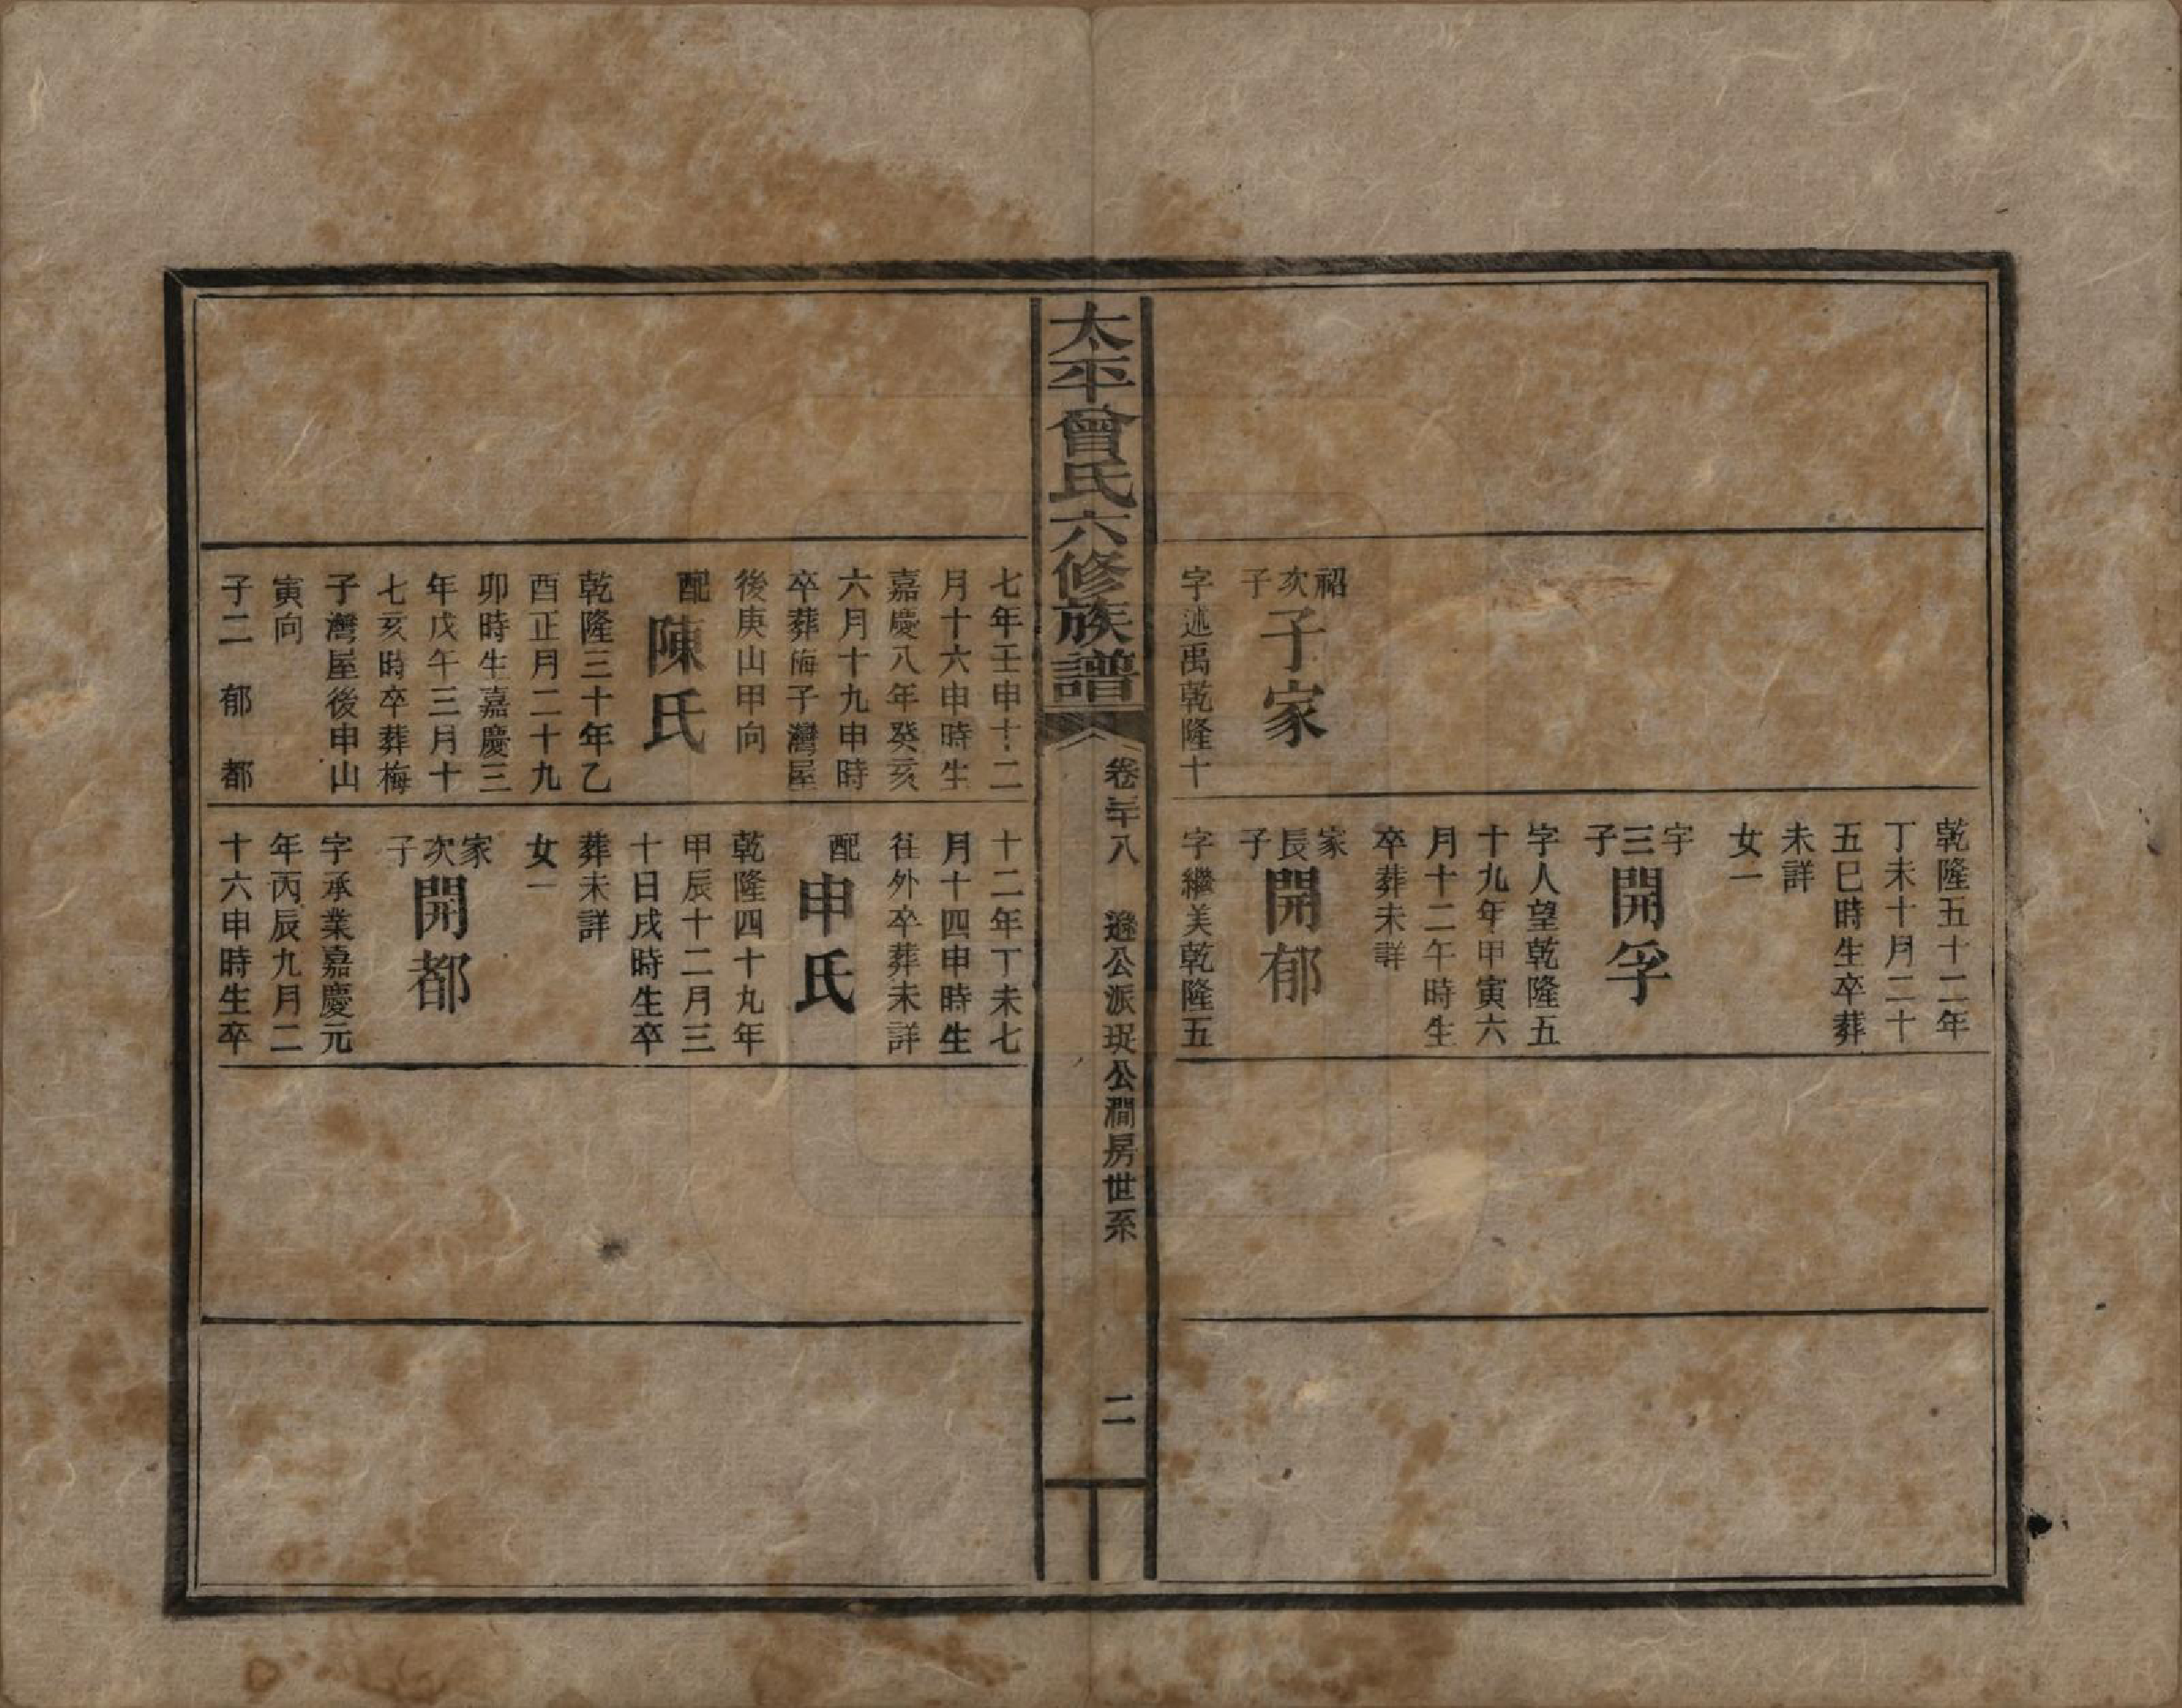 紹次子
子家
字述禹乾隆十
乾隆五十二年
丁未十月二十
五巳時生卒葬
未詳
女一
宇三子
開孚
字人望乾隆五
十九年甲寅六
月十二午時生
卒葬未詳
家長子
開郁
字繼美乾隆五
太平曾氏六修族譜
卷三十八
遜公派珽公澗房世系
二
七年壬申十二
月十六申時生
嘉慶八年癸亥
六月十九申時
卒葬梅子灣屋
後庚山甲向
配
陳氏
乾隆三十年乙
酉正月二十九
卯時生嘉慶三
年戊午三月十
七亥時卒葬梅
子灣屋後申山
寅向
子二 郁 都
十二年丁未七
月十四申時生
往外卒葬未詳
配
申氏
乾隆四十九年
甲辰十二月三
十日戌時生卒
葬未詳
女一
家次子
開都
字承業嘉慶元
年丙辰九月二
十六申時生卒